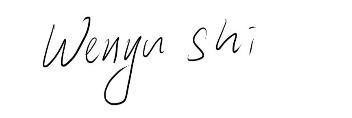 Wenyu Shi